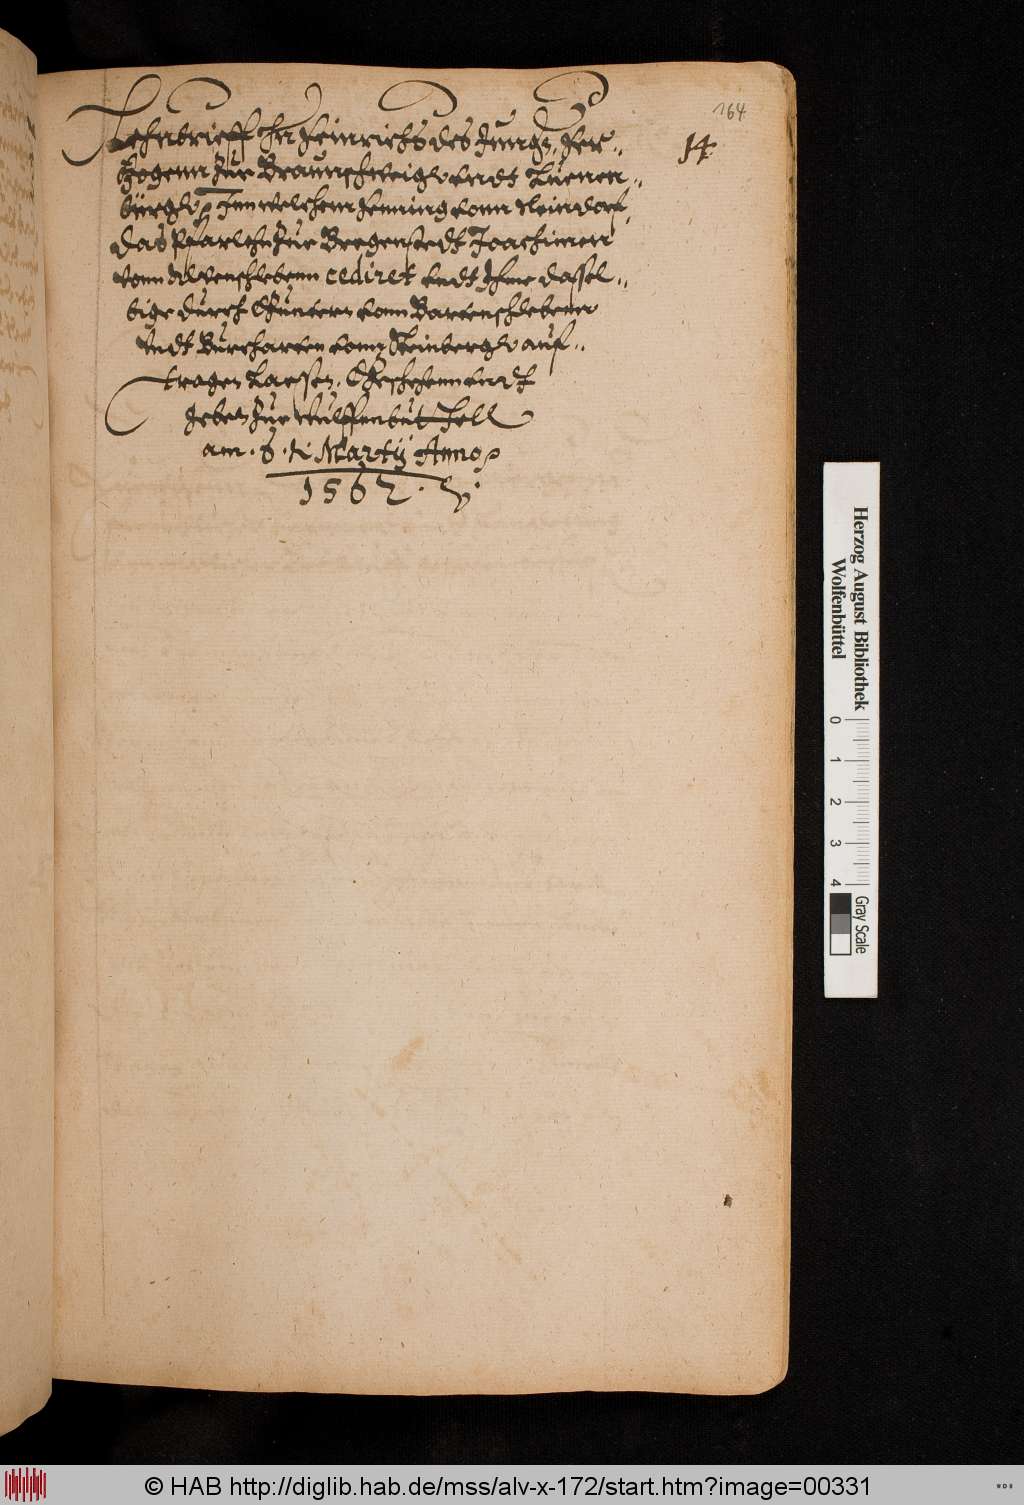 164
14.
Lehnbrieff Ehrn Heinrichs des Jungn. Her„
Zogenn Zue Braunschweigk vndt Luenen„
burgk, Inn welchem Henning vonn Neindorf,
das Pfarlehn Zue Bregenstedt Joachimen
vonn Alvenschlebenn cediret vndt Ihme dassel„
bige durch Guntern vonn Bartenschlebenn
vndt Burcharten vonn Steinbergk auf„
tragen Lassen. Geschehenn vndt
geben Zue Wulffenbuttell
am. 8. ti Martij Anno
1562.
Herzog August Bibliothek
Wolfenbüttel
0 1 2 3 4
Gray Scale
© HAB http://diglib.hab.de/mss/alv-x-172/start.htm?image=00331